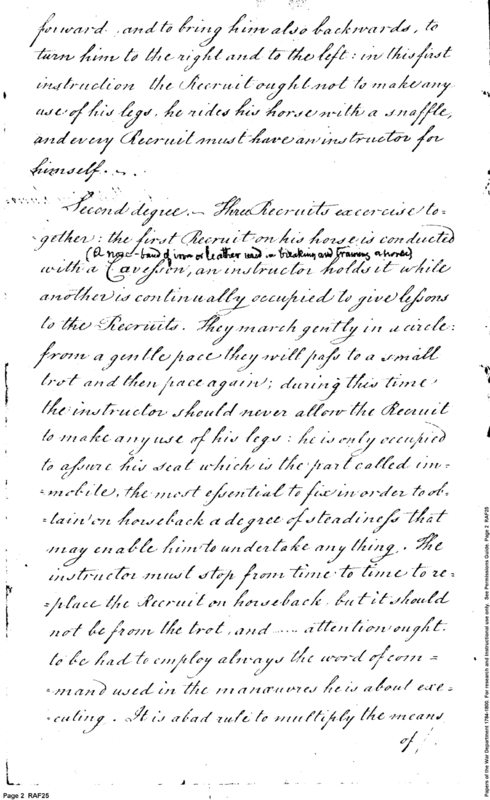 forward, and to bring him also backwards, to
turn him to the right and to the left: in this first
instruction the Recruit ought not to make any
use of his legs, he rides his horse with a snaffle,
and every Recruit must have an instructor for
himself.
Second degree. - Three Recruits excercise to-
gether: the first Recruit on his horse is conducted
(A nose-band of iron or leather used in breaking and training a horse)
with a Cavesson, an instructor holds it while
another is continually occupied to give lessons
to the Recruits. They march gently in a circle:
from a gentle pace they will pass to a small
trot and then pace again; during this time
the instructor should never allow the Recruit
to make any use of his legs: he is only occupied
to assure his seat which is the part called im=
=mobile, the most essential to fix in order to ob=
=tain on horseback a degree of steadiness that
may enable him to undertake any thing. The
instructor must stop from time to time to re=
=place the Recruit on horseback but it should
not be from the trot, and .... attention ought
to be had to employ always the word of com=
=mand used in the manœuvres he is about exe=
=cuting. It is a bad rule to multiply the means
of
Page 2 RAF25
Papers of the War Department 1784-1800. For research and instructional use only. See Permissions Guide. Page 2 RAF25